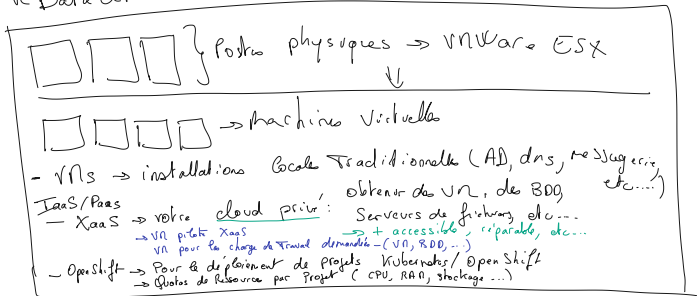 Data Cen
Postes physiques → VMWare ESX
→ Machines Virtuelles
- VMs → installations locale Traditionnelle (AD, dns, messagerie, etc....)
IaaS/PaaS
- XaaS → votre cloud privé: obtenir des VM, des BDD, Serveurs de fichiers, etc...
→ VM pilote XaaS → + accessible, réparable, etc...
VM pour la charge de Travail demandée - (VM, BDD, ...)
- OpenShift → Pour le déploiement de projets Kubernetes / OpenShift
→ Quotas de Ressource par Projet ( CPU, RAM, stockage ...)